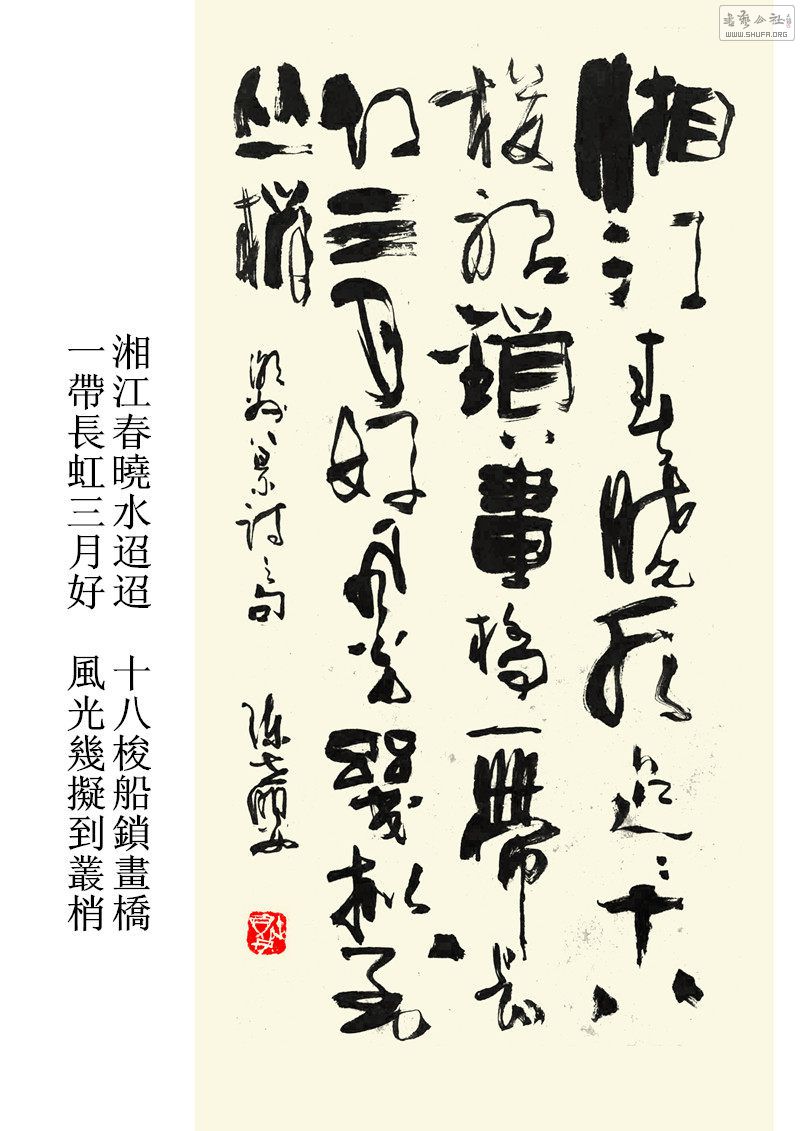 書藝公社
WWW.SHUFA.ORG
湘江春曉水迢迢十八
梭船鎖畫橋一帶長
虹三月好風光幾擬到
丛梢
潮州八景詩之句
湘江春曉水迢迢　十八梭船鎖畫橋
一帶長虹三月好　風光幾擬到叢梢